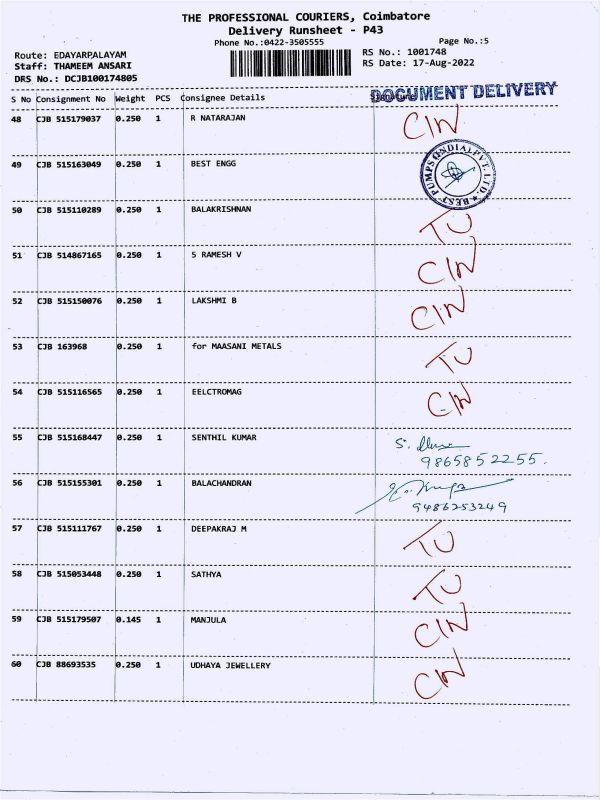 THE PROFESSIONAL COURIERS, Coimbatore
Delivery Runsheet - P43
Phone No.:0422-3505555 Page No.:5
Route: EDAYARPALAYAM RS No.: 1001748
Staff: THAMEEM ANSARI RS Date: 17-Aug-2022
DRS No.: DCJB100174805
DOCUMENT DELIVERY
S No Consignment No Weight PCS Consignee Details Signature
48 CJB 515179037 0.250 1 R NATARAJAN CIN
49 CJB 515163049 0.250 1 BEST ENGG BEST PUMPS (INDIA) PVT. LTD.
50 CJB 515110289 0.250 1 BALAKRISHNAN TU
51 CJB 514867165 0.250 1 S RAMESH V CIN
52 CJB 515150076 0.250 1 LAKSHMI B CIN
53 CJB 163968 0.250 1 for MAASANI METALS TU
54 CJB 515116565 0.250 1 EELCTROMAG CIN
55 CJB 515168447 0.250 1 SENTHIL KUMAR S.
9865852255.
56 CJB 515155301 0.250 1 BALACHANDRAN
9486253249
57 CJB 515111767 0.250 1 DEEPAKRAJ M TU
58 CJB 515053448 0.250 1 SATHYA TU
59 CJB 515179507 0.145 1 MANJULA CIN
60 CJB 88693535 0.250 1 UDHAYA JEWELLERY CIN